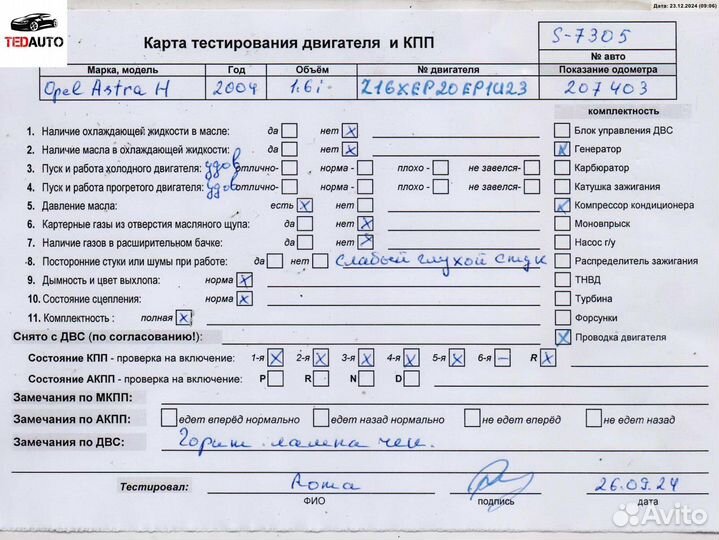 Дата: 23.12.2024 (09:06)
TEDAUTO
Карта тестирования двигателя и КПП
S-7305
№ авто
Марка, модель Год Объём № двигателя Показание одометра
Opel Astra H 2004 1.6i Z16XEP20EP1U23 207403
комплектность
1. Наличие охлаждающей жидкости в масле: да нет x Блок управления ДВС
2. Наличие масла в охлаждающей жидкости: да нет x Генератор
3. Пуск и работа холодного двигателя: удов отлично- норма - плохо - не завелся- Карбюратор
4. Пуск и работа прогретого двигателя: удов отлично- норма - плохо - не завелся- Катушка зажигания
5. Давление масла: есть x нет Компрессор кондиционера
6. Картерные газы из отверстия масляного щупа: да нет x Моновпрыск
7. Наличие газов в расширительном бачке: да нет x Насос г/у
8. Посторонние стуки или шумы при работе: да нет слабый глухой стук Распределитель зажигания
9. Дымность и цвет выхлопа: норма x ТНВД
10. Состояние сцепления: норма x Турбина
11. Комплектность : полная x Форсунки
Снято с ДВС (по согласованию!): Проводка двигателя
Состояние КПП - проверка на включение: 1-я x 2-я x 3-я x 4-я x 5-я x 6-я – R x
Состояние АКПП - проверка на включение: P R N D
Замечания по МКПП:
Замечания по АКПП: едет вперёд нормально едет назад нормально не едет вперёд не едет назад
Замечания по ДВС: Горит лампа чек.
Тестировал: Рома 26.09.24
ФИО подпись дата
Avito